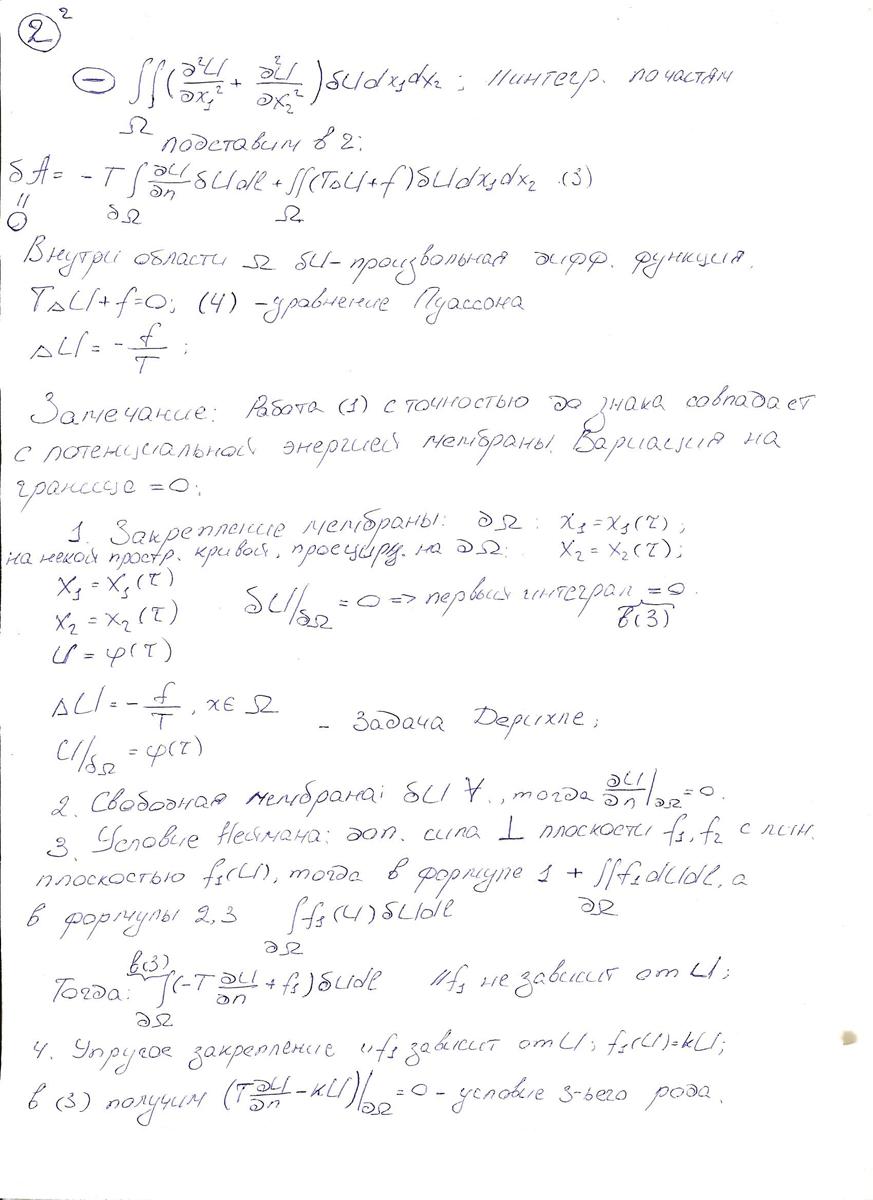 2 2
⊖ ∬_Ω (∂²U/∂x₁² + ∂²U/∂x₂²) δU dx₁dx₂ ; //интегр. по частям
подставим в 2:
δA = - T ∫_∂Ω ∂U/∂n δU dl + ∬_Ω (TΔU + f) δU dx₁dx₂ (3)
॥
0
Внутри области Ω δU – произвольная дифф. функция.
TΔU + f = 0; (4) – уравнение Пуассона
ΔU = - f/T ;
Замечание: Работа (1) с точностью до знака совпадает
с потенциальной энергией мембраны. Вариация на
границе = 0:
1. Закрепление мембраны: ∂Ω : x₁ = x₁(τ) ;
на некой простр. кривой, проециру. на ∂Ω: x₂ = x₂(τ);
x₁ = x₁(τ)
x₂ = x₂(τ) δU/δΩ = 0 => первый интеграл = 0 в(3)
U = φ(τ)
ΔU = - f/T , x ∈ Ω
U/δΩ = φ(τ) – Задача Дерихле;
2. Свободная мембрана: δU ∀., тогда ∂U/∂n |∂Ω = 0.
3. Условие Неймана: доп. сила ⊥ плоскости f₁, f₂ с лин.
плоскостью f₁(U), тогда в формуле 1 + ∬_∂Ω f₁ dU dl, а
в формулы 2,3 ∫_∂Ω f₁(U) δU dl
Тогда: в(3) ∫_∂Ω (-T ∂U/∂n + f₁) δU dl //f₁ не зависит от U;
4. Упругое закрепление //f₁ зависит от U; f₁(U)=kU;
в (3) получим (T ∂U/∂n - kU)|∂Ω = 0 – условие 3-ьего рода.